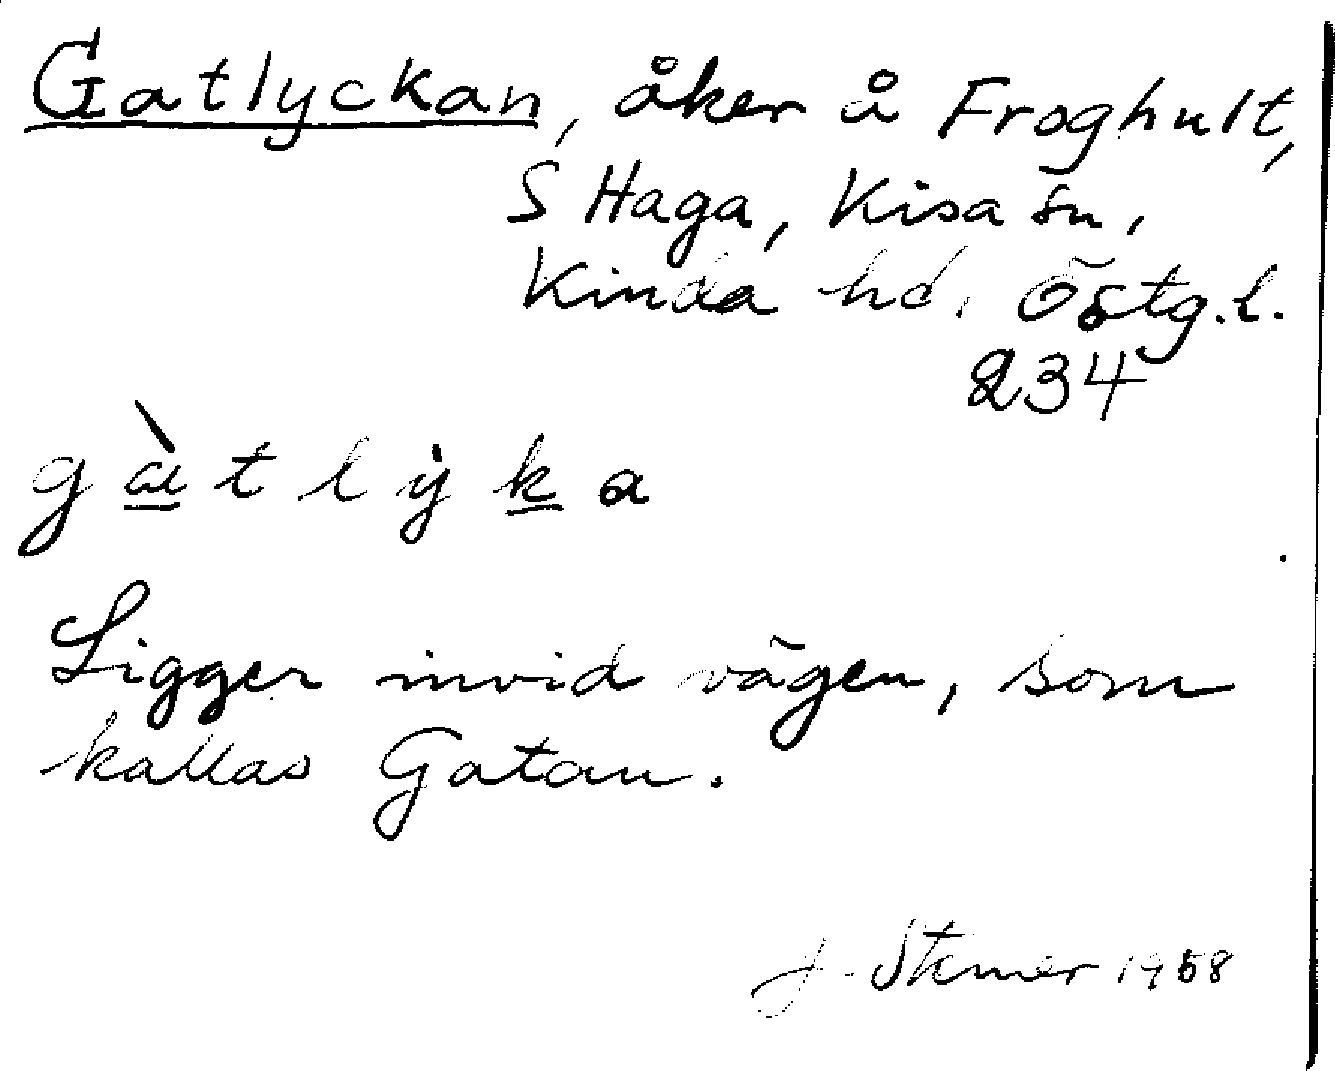 Gatlyckan, åker å Froghult,
S Haga, Kisa sn,
Kinda hd, Östg.l.
234
g à t l ẏ k a
Ligger invid vägen, som
kallas Gatan.
J. 1958